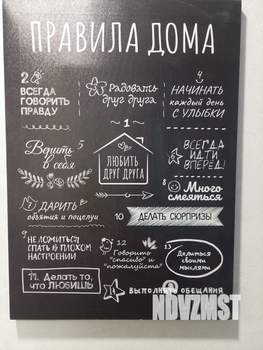 ПРАВИЛА ДОМА
2
ВСЕГДА
ГОВОРИТЬ
ПРАВДУ
Радовать
друг друга
НАЧИНАТЬ
каждый день
С УЛЫБКИ
1
ЛЮБИТЬ
ДРУГ ДРУГА
Верить 5
в себя
ВСЕГДА
ИДТИ
ВПЕРЕД!
8 Много
смеяться
ДАРИТЬ
объятия и поцелуи
10 ДЕЛАТЬ СЮРПРИЗЫ
9 НЕ ЛОЖИТЬСЯ
СПАТЬ В ПЛОХОМ
НАСТРОЕНИИ
12
Говорить
"спасибо" и
"пожалуйста"
13
Делиться
своими
мыслями
11. Делать то,
что ЛЮБИШЬ
ВЫПОЛНЯТЬ ОБЕЩАНИЯ
NDVZMST